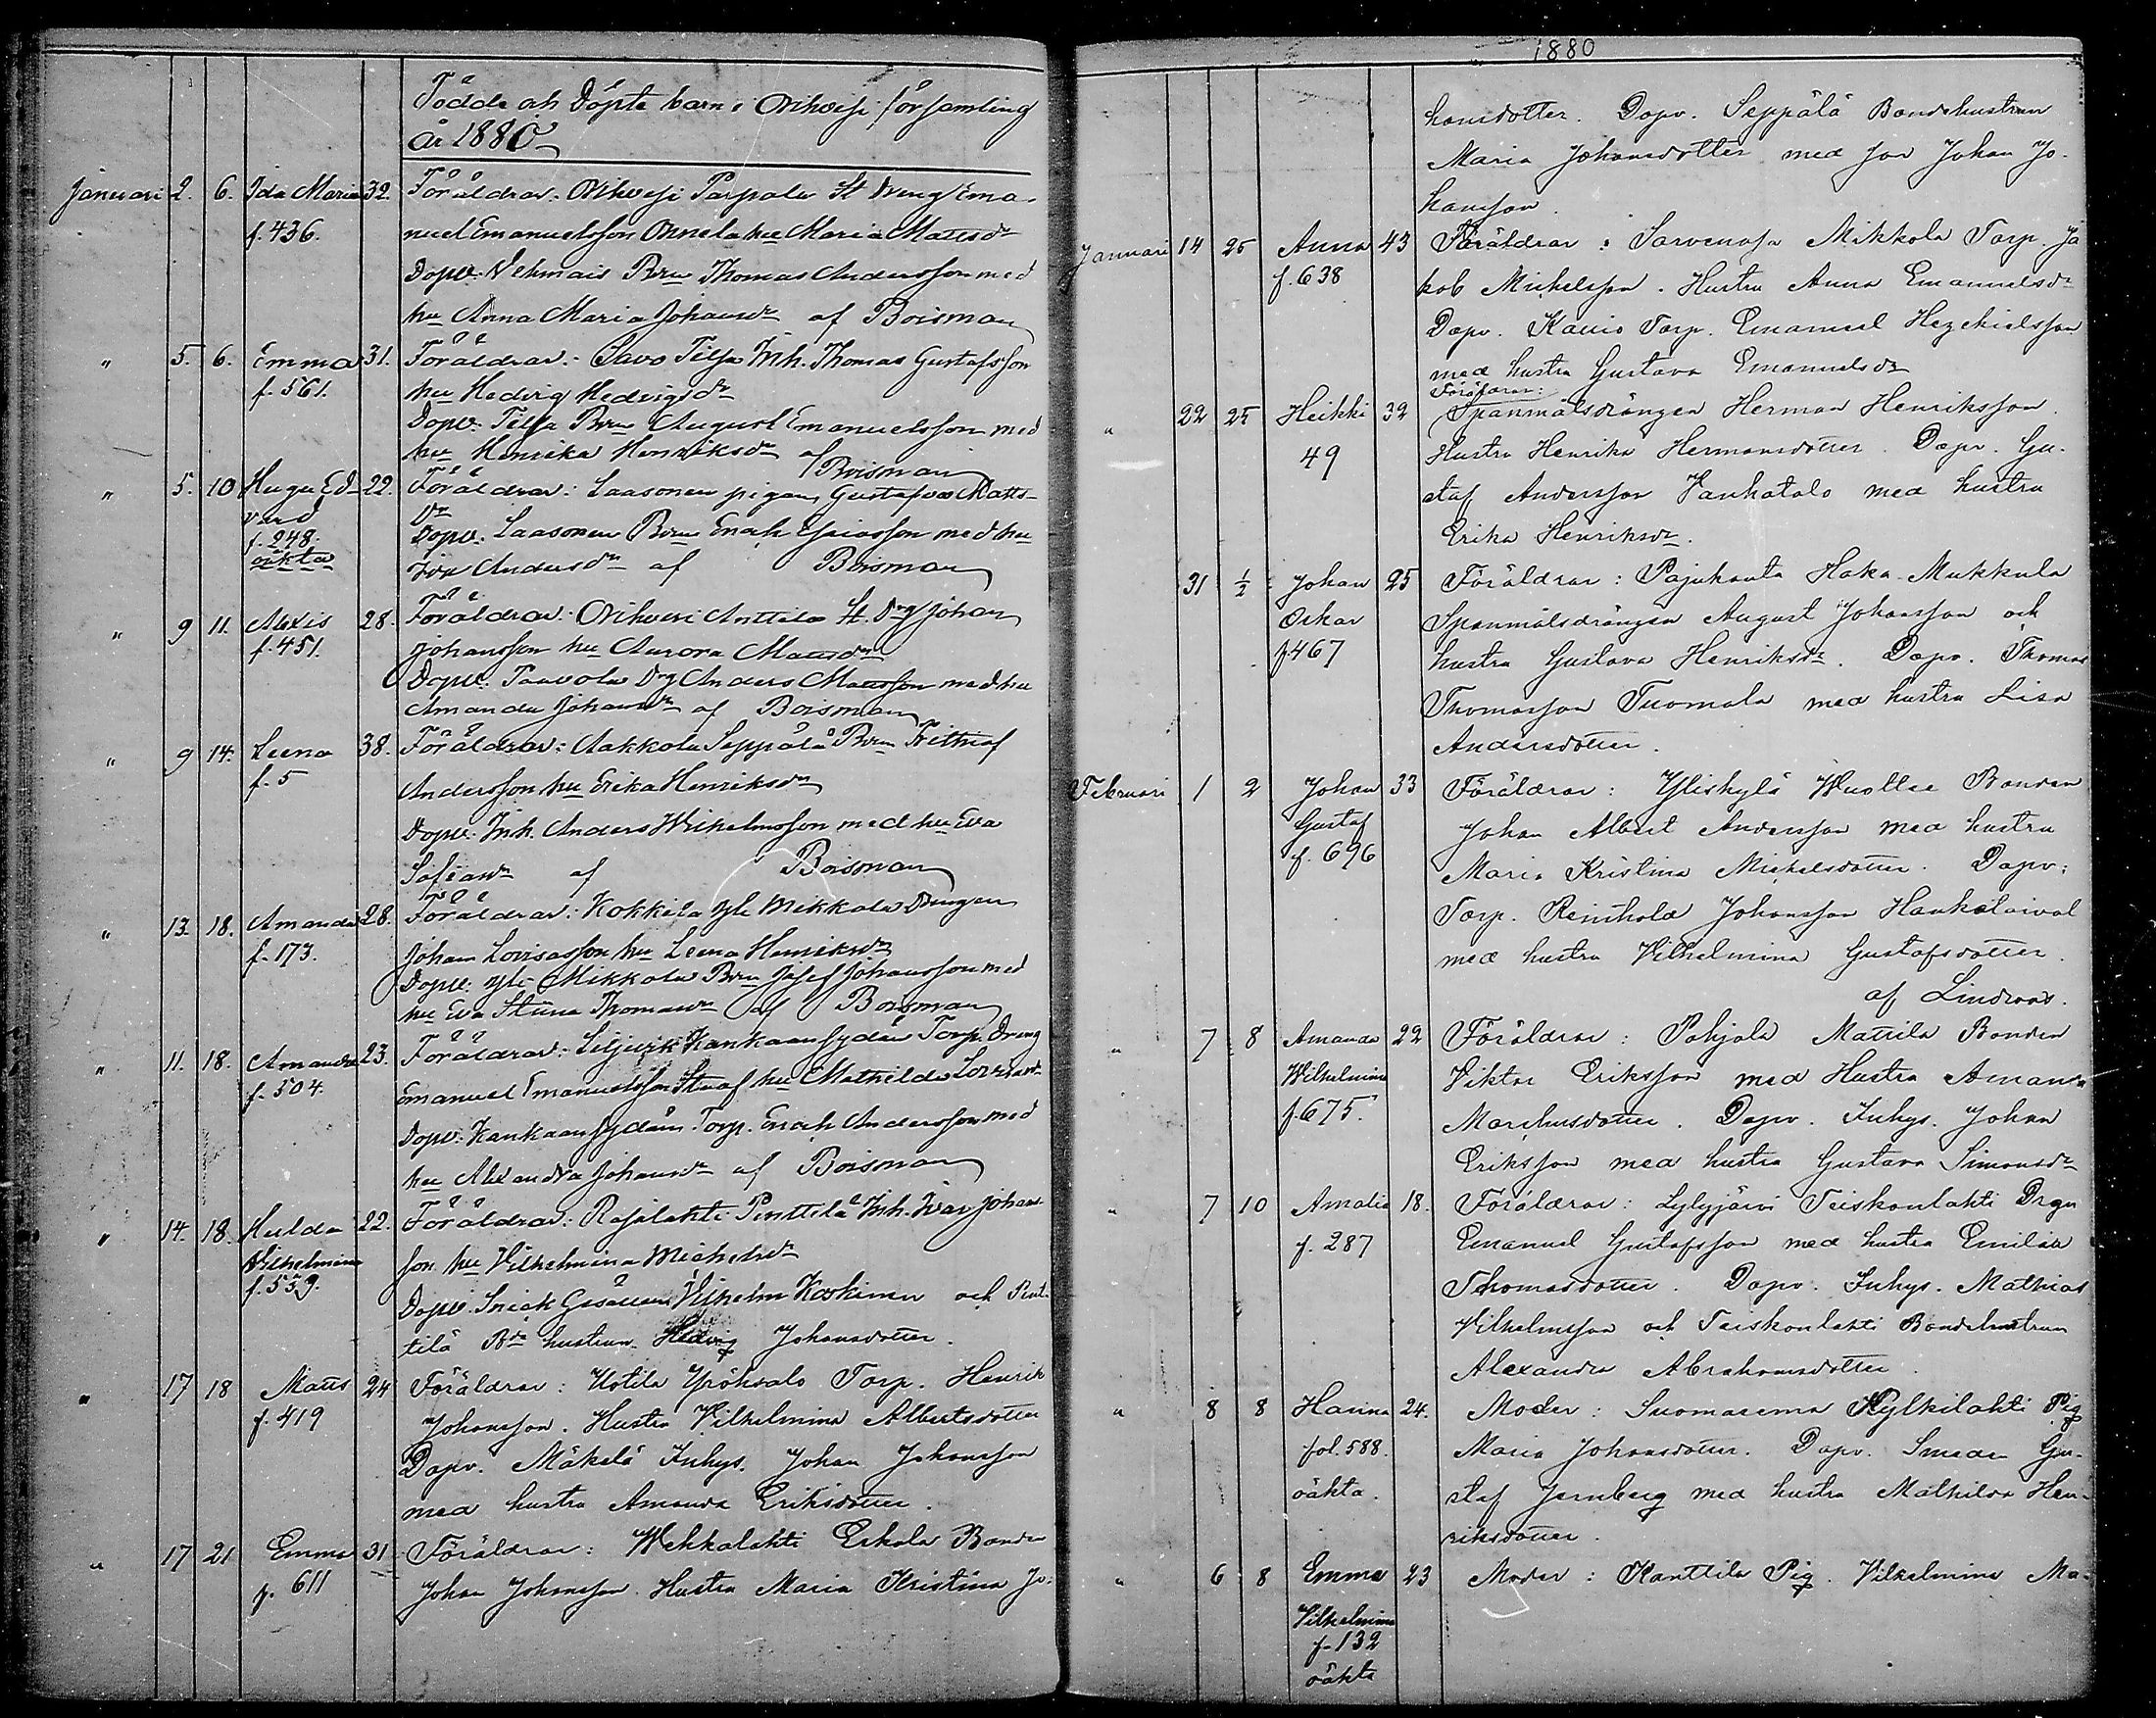 Födde och Döpte barn i Orihvesi församling
år 1880
Januari 2. 6. Ida Maria 32. Föräldrar: Orihvesi Parpala St Dreng Ema-
f. 436. nuel Emanuelsson Onnela hu Maria Mattsdr
Dopv. Vehmais Bon Thomas Andersson med
hu Anna Maria Johansdr af Boisman
" 5. 6. Emma 31. Föräldrar: Savo Tilsa Inh. Thomas Gustafsson
f. 561. hu Hedvig Hedvigsdr
Dopv. Tilsa Bon August Emanuelsson med
hu Henrika Henriksdr af Boisman
" 5. 10 Hugo Ed- 22. Föräldrar: Laasonen pigan Gustafva Matts-
vard dr
f. 248. Dopv. Laasonen Bon Enoch Esaiasson med hu
oäkta Ida Andersdr af Boisman
" 9 11. Alexis 28. Föräldrar: Orihvesi Anttila St. Drg Johan
f. 451. Johansson hu Aurora Mattsdr
Dopv. Paavola Drg Anders Mattsson med hu
Amanda Johansdr af Boisman
" 9 14. Leena 38. Föräldrar: Aakkola Seppälä Bon Frithiof
f. 5 Andersson hu Erika Henriksdr
Dopv. Inh. Anders Wilhelmsson med hu Eva
Sofiasdr af Boisman
" 13. 18. Amanda 28. Föräldrar: Kokkila Yli Mikkola Drengen
f. 173. Johan Lovisasson hu Leena Henriksdr
Dopv. Yli Mikkola Bon Josef Johansson med
hu Eva Stiina Thomasdr af Boisman
" 11. 18. Amanda 23. Föräldrar: Kankaansydän Torp. Dreng
f. 504. Emanuel Emanuelsson Staaf hu Mathilda Lovisasdr
Dopv. Kankaansydän Torp. Enoch Andersson med
hu Alexandra Johansdr af Boisman
" 14. 18. Hulda 22. Föräldrar: Rajalahti Penttilä Inh. Ivar Johans-
Vilhelmina son hu Vilhelmina Michelsdr
f. 559. Dopv. Snick Gesällen Vilhelm Koskinen och Pent-
tilä Bde hustrun Hedvig Johansdotter.
" 17 18 Matts 24 Föräldrar: Uotila Yröksalo Torp. Henrik
f. 419 Johansson. Hustru Vilhelmina Albertsdotter
Dopv. Mäkelä Inhys. Johan Johansson
med hustru Amanda Eriksdotter.
" 17 21 Emma 31 Föräldrar: Wehkalahti Erkola Bonden
f. 611 Johan Johansson. Hustru Maria Kristina Jo-
1880
hansdotter. Dopv. Seppälä Bondehustrun
Maria Johansdotter med son Johan Jo-
hansson.
Januari 14 25 Anna 43 Föräldrar: Sarvenaja Mikkola Torp. Ja
f. 638 kob Michelsson. Hustru Anna Emanuelsdr
Dopv. Kauio Torp. Emanuel Hezekielsson
med hustru Gustava Emanuelsdr
Föräldrar:
" 22 25 Heikki 32 Spanmålsdrängen Herman Henriksson.
49 Hustru Henrika Hermansdotter. Dopv. Gu-
staf Andersson Vanhatalo med hustru
Erika Henriksdr.
31 1/2 Johan 25 Föräldrar: Pajukanta Haka-Mukkula
Oskar Spanmålsdrängen August Johansson och
f. 467 hustru Gustava Henriksdr. Dopv. Thomas
Thomasson Tuomala med hustru Lisa
Andersdotter.
Februari 1 2 Johan 33 Föräldrar: Yliskylä Wuoltee Bonden
Gustaf Johan Albert Andersson med hustru
f. 696 Maria Kristina Michelsdotter. Dopv:
Torp. Reinhold Johansson
med hustru Vilhelmina Gustafsdotter.
af Lindroos.
" 7 8 Amanda 22 Föräldrar: Pohjola Mattila Bonden
Wilhelmina Viktor Eriksson med Hustru Amanda
f. 675. Markusdotter. Dopv. Inhys. Johan
Eriksson med hustru Gustava Simonsdr
" 7 10 Amalia 18. Föräldrar: Lylyjärvi Teiskonlahti Drgn
f. 287 Emanuel Gustafsson med hustru Emilia
Thomasdotter. Dopv. Inhys. Mathias
Vilhelmsson och Teiskonlahti Bondehustrun
Alexandra Abrahamsdotter.
" 8 8 Hanna 24. Moder: Suomasema Kylkilahti Pig
fol. 588. Maria Johansdotter. Dopv. Smeden Gu-
oäkta. staf Jernberg med hustru Mathilda Hen-
riksdotter.
" 6 8 Emma 23 Moder: Kanttila Pig. Vilhelmina Ma-
Vilhelmina
f. 132
oäkta